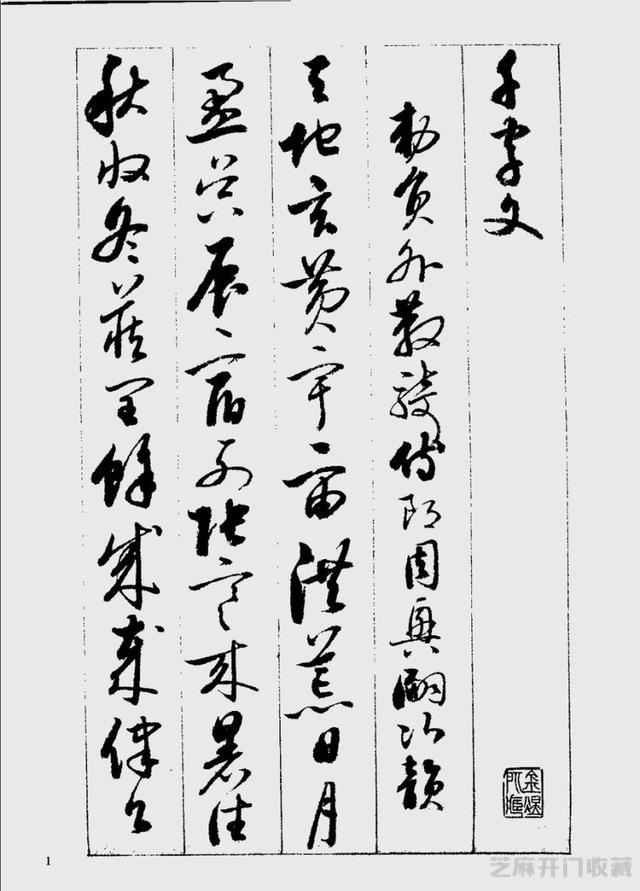 千字文
勅員外散騎侍郎周興嗣次韻
天地玄黄宇宙洪荒日月
盈昃辰宿列張寒來暑往
秋收冬藏閏餘成歲律召
1
芝麻开门收藏